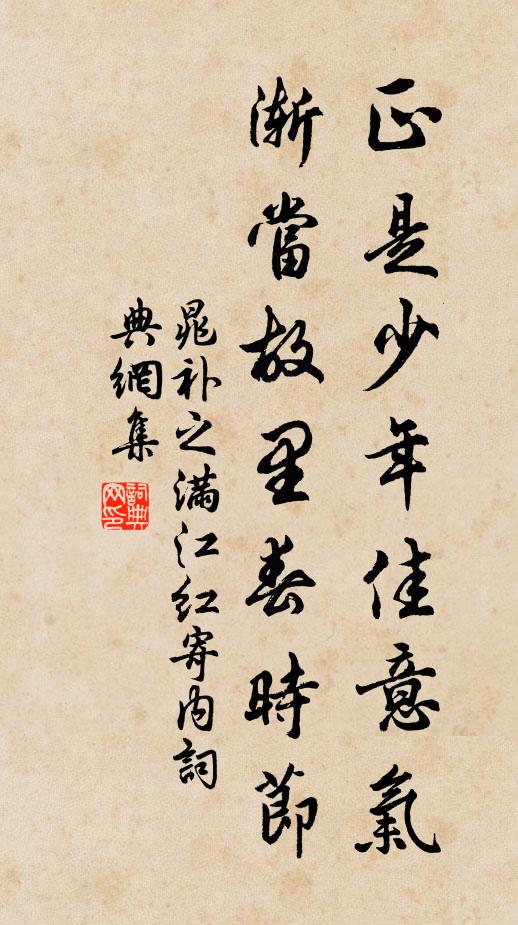 正是少年佳意氣
漸當故里春時節
晁补之满江红寄内詞
典網集
詞典网印